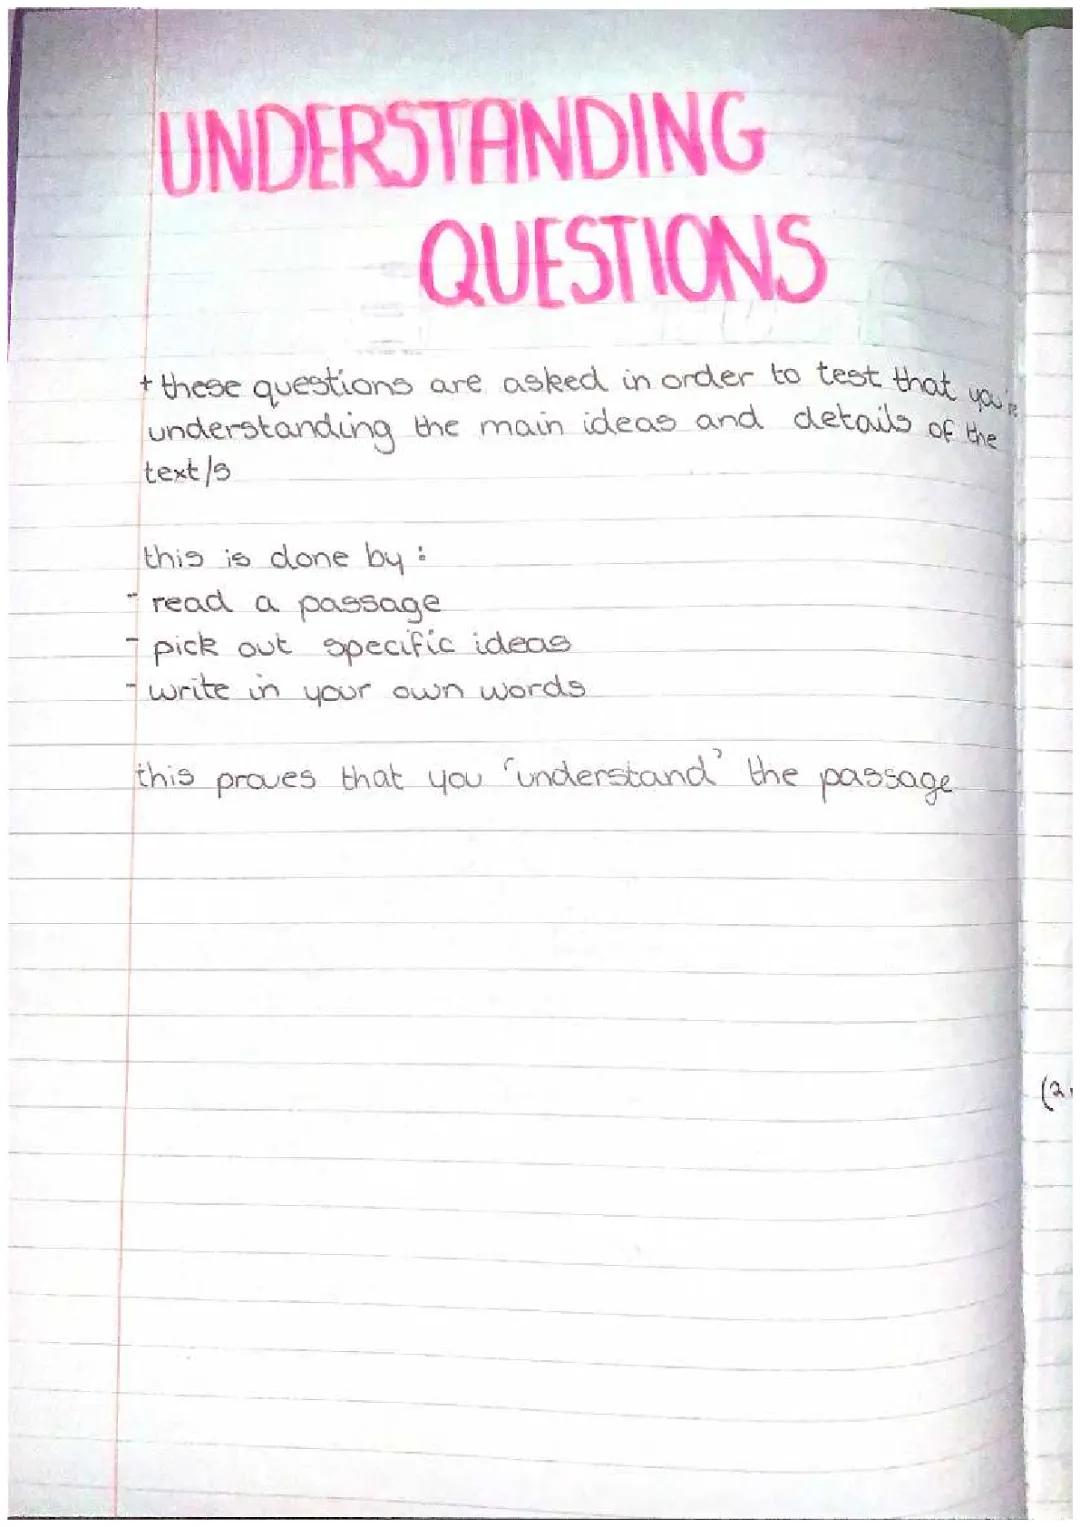 UNDERSTANDING
QUESTIONS
+ these questions are asked in order to test that you're
understanding the main ideas and details of the
text/s
this is done by :
- read a passage
- pick out specific ideas
- write in your own words
this proves that you 'understand' the passage
(2.